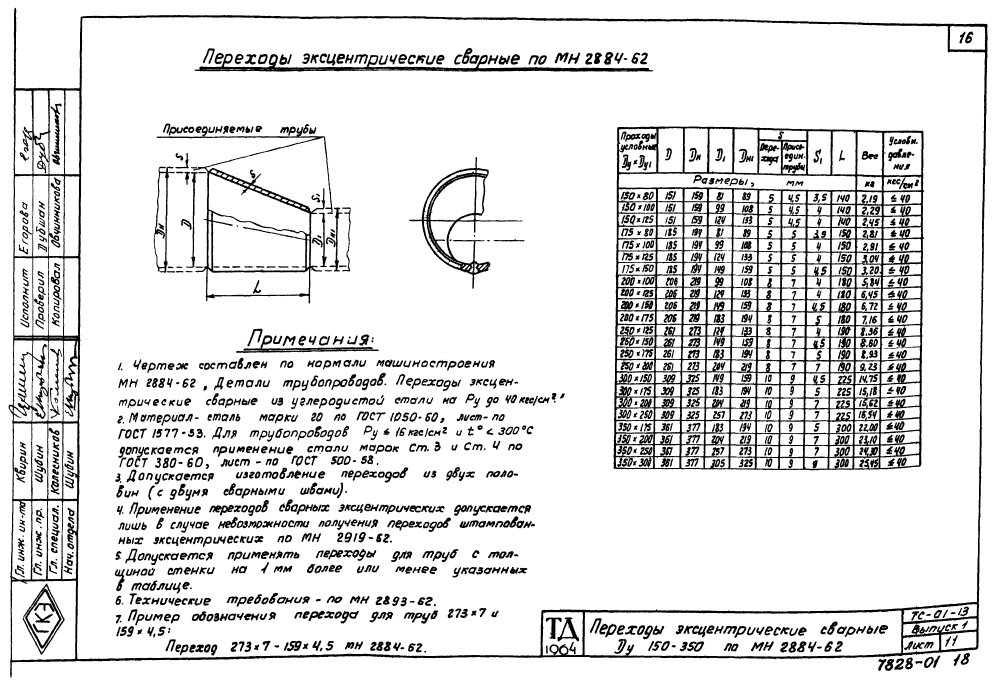 16
Переходы эксцентрические сварные по МН 2884-62
Присоединяемые трубы
S
S
S₁
Dн
D
D₁
Dн₁
L
Проходы условные Dу × Dу₁ D Dн D₁ Dн₁ S S₁ L Вес Условн. давления
Перехода Присоедин. трубы
Размеры, мм кг кгс/см²
150×80 151 159 81 89 5 4,5 3,5 140 2,19 ≤40
150×100 151 159 99 108 5 4,5 4 140 2,29 ≤40
150×125 151 159 124 133 5 4,5 4 140 2,45 ≤40
175×80 185 194 81 89 5 5 3,5 150 2,81 ≤40
175×100 185 194 99 108 5 5 4 150 2,91 ≤40
175×125 185 194 124 133 5 5 4 150 3,04 ≤40
175×150 185 194 149 159 5 5 4,5 150 3,20 ≤40
200×100 206 219 99 108 8 7 4 180 5,84 ≤40
200×125 206 219 124 133 8 7 4 180 6,45 ≤40
200×150 206 219 149 159 8 7 4,5 180 6,72 ≤40
200×175 206 219 183 194 8 7 5 180 7,16 ≤40
250×125 261 273 124 133 8 7 4 190 8,36 ≤40
250×150 261 273 149 159 8 7 4,5 190 8,60 ≤40
250×175 261 273 183 194 8 7 5 190 8,93 ≤40
250×200 261 273 204 219 8 7 7 190 9,23 ≤40
300×150 309 325 149 159 10 9 4,5 225 14,75 ≤40
300×175 309 325 183 194 10 9 5 225 15,18 ≤40
300×200 309 325 204 219 10 9 7 225 15,62 ≤40
300×250 309 325 257 273 10 9 7 225 16,54 ≤40
350×175 361 377 183 194 10 9 5 300 22,00 ≤40
350×200 361 377 204 219 10 9 7 300 23,10 ≤40
350×250 361 377 257 273 10 9 7 300 24,30 ≤40
350×300 361 377 305 325 10 9 9 300 25,45 ≤40
Примечания:
1. Чертеж составлен по нормали машиностроения
МН 2884-62 „Детали трубопроводов. Переходы эксцен-
трические сварные из углеродистой стали на Pу до 40 кгс/см²."
2. Материал- сталь марки 20 по ГОСТ 1050-60, лист- по
ГОСТ 1577-53. Для трубопроводов Pу ≤ 16 кгс/см² и t° < 300°С
допускается применение стали марок Ст. 3 и Ст. 4 по
ГОСТ 380-60, лист - по ГОСТ 500-58.
3. Допускается изготовление переходов из двух поло-
вин (с двумя сварными швами).
4. Применение переходов сварных эксцентрических допускается
лишь в случае невозможности получения переходов штампован-
ных эксцентрических по МН 2919-62.
5. Допускается применять переходы для труб с тол-
щиной стенки на 1 мм более или менее указанных
в таблице.
6. Технические требования - по МН 2893-62.
7. Пример обозначения перехода для труб 273×7 и
159×4,5:
Переход 273×7-159×4,5 МН 2884-62.
Гл. инж. ин-та Кварин
Гл. инж. пр. Шубин
Гл. специал. Колесников
Нач. отдела Шубин
Исполнит Егорова
Проверил Дубиан
Копировал Овчинникова
ГКЭ
ТД
1964
Переходы эксцентрические сварные
Dу 150-350 по МН 2884-62
ТС-01-13
Выпуск 1
Лист 11
7828-01 18